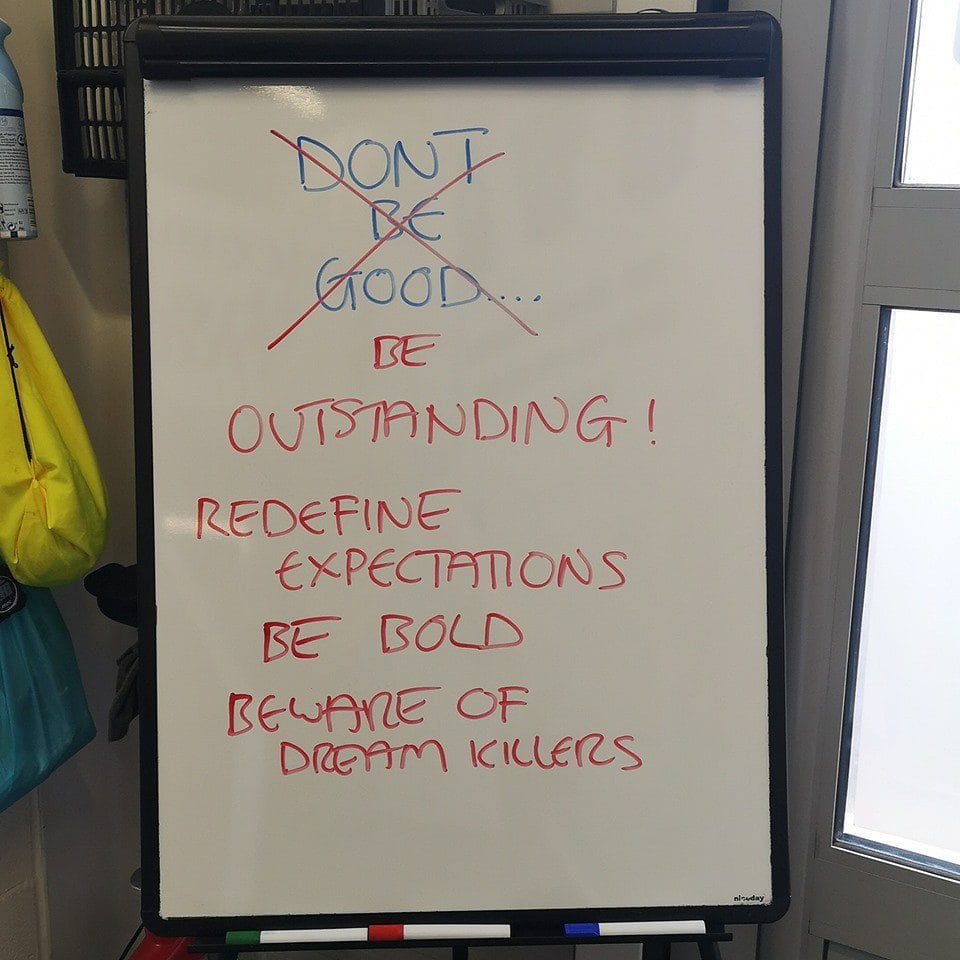 DONT
BE
GOOD....
BE
OUTSTANDING!
REDEFINE
EXPECTATIONS
BE BOLD
BEWARE OF
DREAM KILLERS